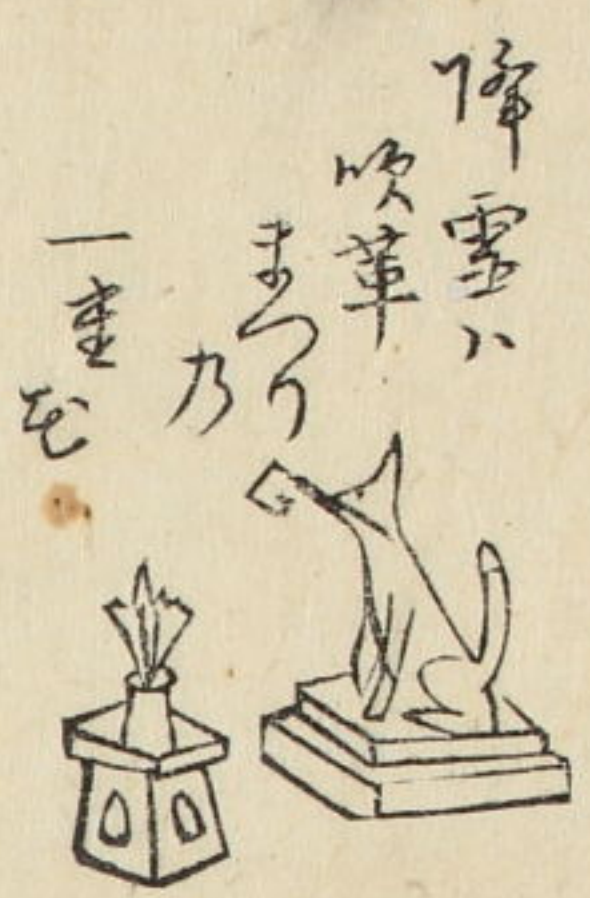 降霊ハ
吹革
まつり
乃
一重